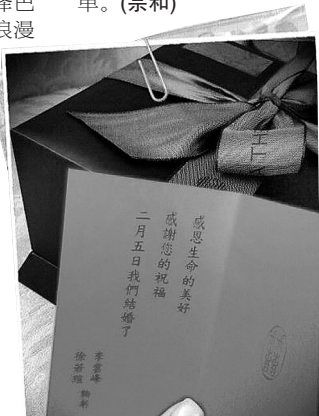 單。(宗和)
浪漫
感恩生命的美好
感謝您的祝福
二月五日我們結婚了
李雲峰
徐若瑄 鞠躬